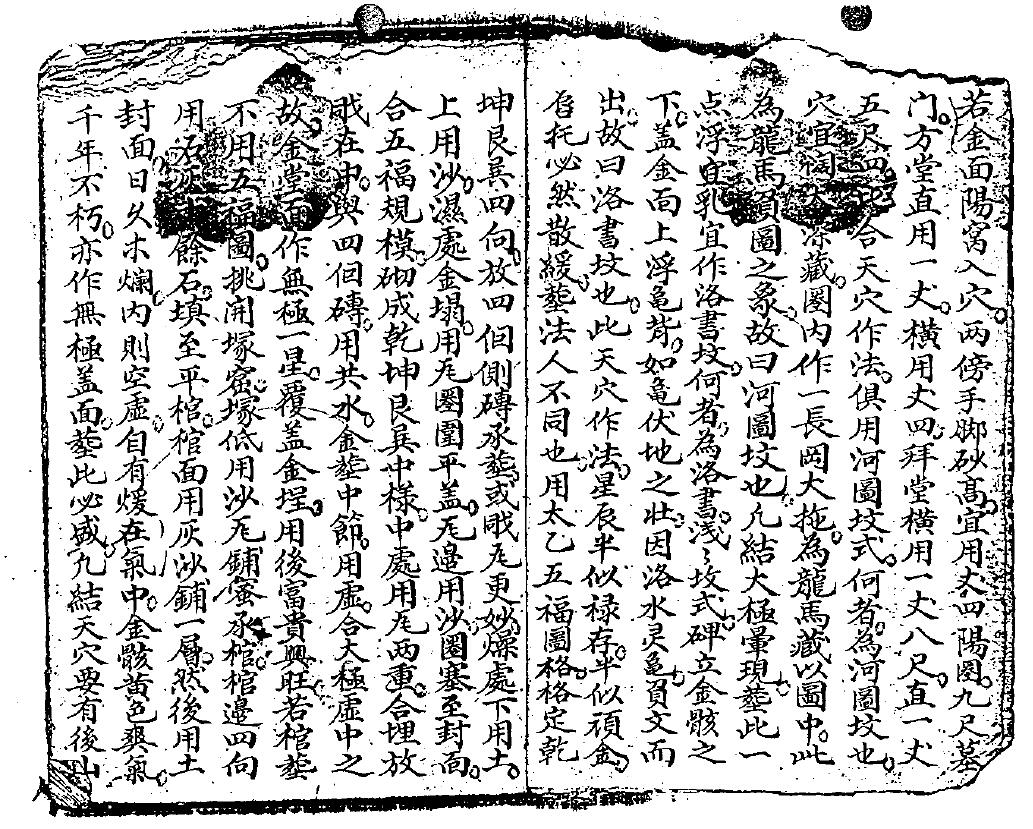 若金面陽窩入穴。两傍手脚砂高。宜用丈四陽圏。九尺墓
门。方堂直用一丈。橫用丈四。拜堂橫用一丈八尺。直一丈
五尺四。合天穴作法。俱用河圖坟式。何者為河圖坟也。
穴宜闊大深藏。圏内作一長岡大拖。為龍馬藏。以圖中。此
為龍馬負圖之象。故曰河圖坟也。凢結太極暈現。塟此一
点浮宜乳。宜作洛書坟。何者為洛書。浅〻坟式。碑立金骸之
下。盖金面上浮亀背。如亀伏地之壮。因洛水灵亀負文而
出。故曰洛書坟也。此天穴作法。星辰半似禄存。半似頑金。
托必然散緩。塟法人不同也。用太乙五福圖格。格定乾
坤艮巽四向。放四個側磚承塟。或戝瓦更妙。燥處下用土。
上用沙。濕處金塌。用瓦圏圍平盖。瓦邉用沙圏塞至封面。
合五福規模。砌成乾坤艮巽中様。中處用瓦两重。合埋放
戝在中。與四個磚用共水。金塟中節。用虚。合太極虚中之
故。金堂面作無極一星。覆盖金埕。用後富貴興旺。若棺塟
不用五福圖。挑開塚窟。塚低用沙瓦鋪蜜承棺。棺邉四向
用石灰餘石填至平棺。棺面用灰沙鋪一層。然後用土
封面。日久木爛。内則空虚。自有煖在氣中。金骸黄色爽氣。
千年不朽。亦作無極盖面。塟此必盛。凢結天穴。要有後山